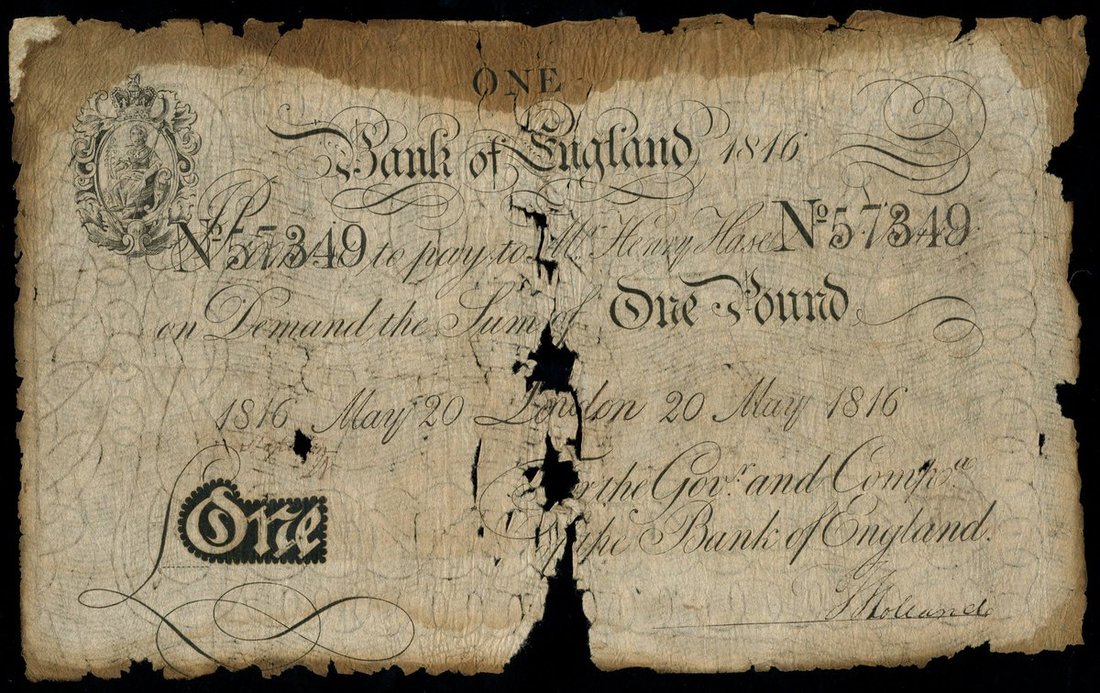 ONE
Bank of England 1816
No 57349 to pay to Mr Henry Hase No 57349
on Demand the Sum of One Pound
1816 May 20 London 20 May 1816
For the Govr. and Compa.
of the Bank of England.
One
Holland